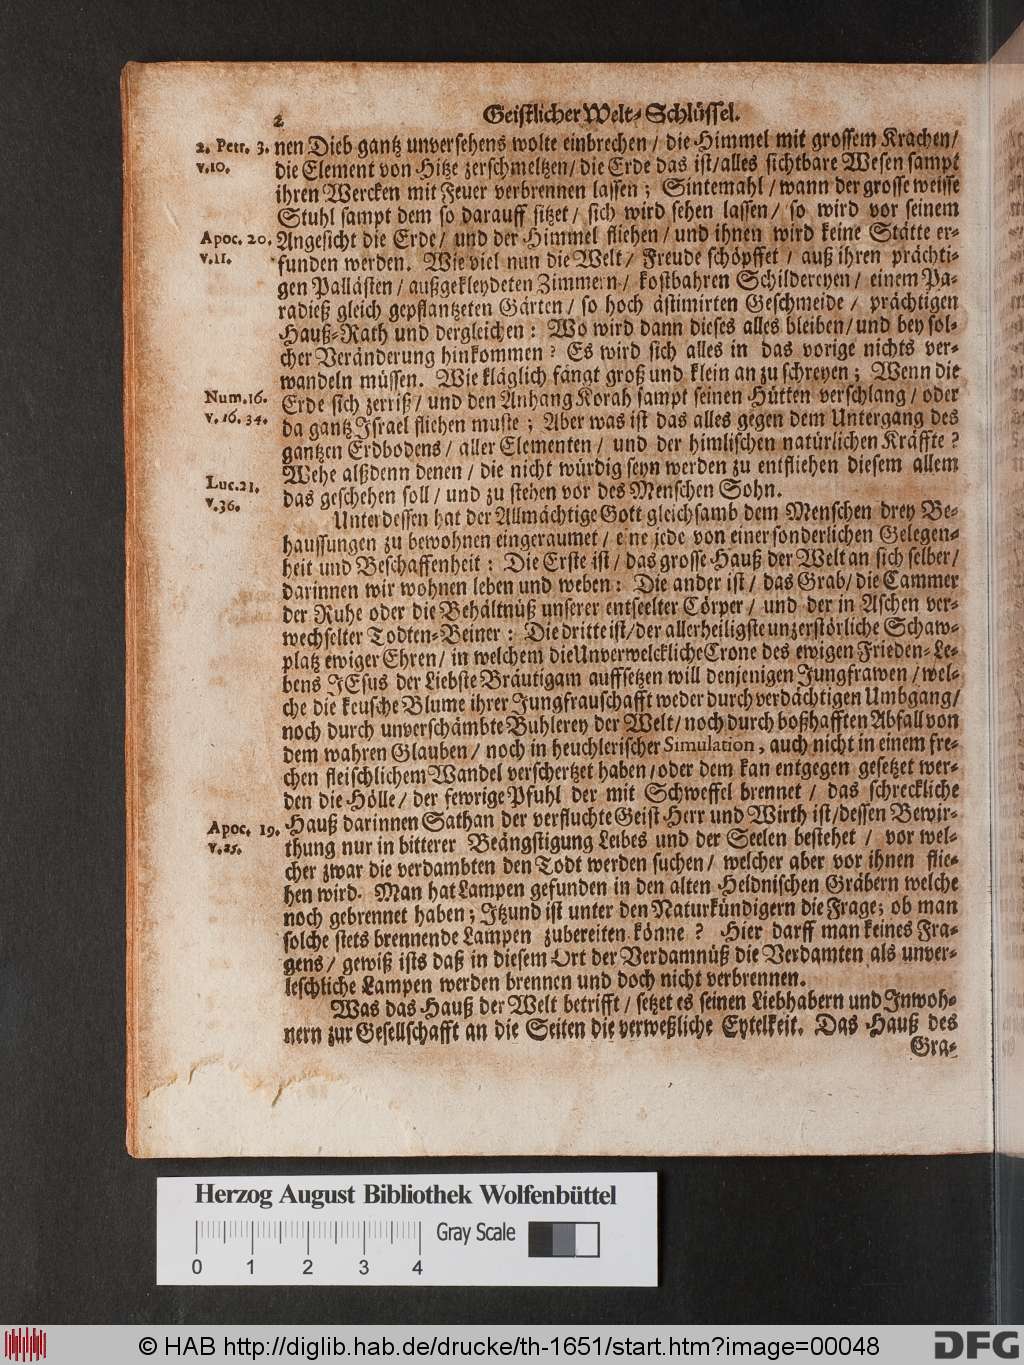 2 Geistlicher Welt-Schlüssel.
2. Petr. 3. nen Dieb gantz unversehens wolte einbrechen / die Himmel mit grossem Krachen /
v.10. die Element von Hitze zerschmeltzen / die Erde das ist / alles sichtbare Wesen sampt
ihren Wercken mit Feuer verbrennen lassen ; Sintemahl / wann der grosse weisse
Stuhl sampt dem so darauff sitzet / sich wird sehen lassen / so wird vor seinem
Apoc. 20. Angesicht die Erde / und der Himmel fliehen / und ihnen wird keine Stätte er-
v.11. funden werden. Wie viel nun die Welt / Freude schöpffet / auß ihren prächti-
gen Pallästen / außgekleydeten Zimmern / kostbahren Schildereyen / einem Pa-
radieß gleich gepflantzeten Gärten / so hoch ästimirten Geschmeide / prächtigen
Hauß-Rath und dergleichen : Wo wird dann dieses alles bleiben / und bey sol-
cher Veränderung hinkommen ? Es wird sich alles in das vorige nichts ver-
wandeln müssen. Wie kläglich fängt groß und klein an zu schreyen ; Wenn die
Num. 16. Erde sich zerriß / und den Anhang Korah sampt seinen Hütten verschlang / oder
v. 16. 34. da gantz Israel fliehen muste ; Aber was ist das alles gegen dem Untergang des
gantzen Erdbodens / aller Elementen / und der himlischen natürlichen Kräffte ?
Luc. 21. Wehe alßdenn denen / die nicht würdig seyn werden zu entfliehen diesem allem
v.36. das geschehen soll / und zu stehen vor des Menschen Sohn.
Unterdessen hat der Allmächtige Gott gleichsamb dem Menschen drey Be-
haussungen zu bewohnen eingeraumet / eine jede von einer sonderlichen Gelegen-
heit und Beschaffenheit : Die Erste ist / das grosse Hauß der Welt an sich selber /
darinnen wir wohnen leben und weben : Die ander ist / das Grab / die Cammer
der Ruhe oder die Behältnüß unserer entseelter Cörper / und der in Aschen ver-
wechselter Todten-Beiner : Die dritte ist / der allerheiligste unzerstörliche Schaw-
platz ewiger Ehren / in welchem die Unverwelckliche Crone des ewigen Frieden-Le-
bens JEsus der Liebste Bräutigam auffsetzen will denjenigen Jungfrawen / wel-
che die keusche Blume ihrer Jungfrauschafft weder durch verdächtigen Umbgang /
noch durch unverschämbte Buhlerey der Welt / noch durch boßhafften Abfall von
dem wahren Glauben / noch in heuchlerischer Simulation, auch nicht in einem fre-
chen fleischlichem Wandel verschertzet haben / oder dem kan entgegen gesetzet wer-
den die Hölle / der fewrige Pfuhl der mit Schweffel brennet / das schreckliche
Apoc. 19. Hauß darinnen Sathan der verfluchte Geist Herr und Wirth ist / dessen Bewir-
v.25. thung nur in bitterer Beängstigung Leibes und der Seelen bestehet / vor wel-
cher zwar die verdambten den Todt werden suchen / welcher aber vor ihnen flie-
hen wird. Man hat Lampen gefunden in den alten Heldnischen Gräbern welche
noch gebrennet haben ; Itzund ist unter den Naturkündigern die Frage ; ob man
solche stets brennende Lampen zubereiten könne ? Hier darff man keines Fra-
gens / gewiß ists daß in diesem Ort der Verdamnüß die Verdamten als unver-
leschliche Lampen werden brennen und doch nicht verbrennen.
Was das Hauß der Welt betrifft / setzet es seinen Liebhabern und Inwoh-
nern zur Gesellschafft an die Seiten die verweßliche Eytelkeit. Das Hauß des
Gra-
Herzog August Bibliothek Wolfenbüttel
Gray Scale
0 1 2 3 4
© HAB http://diglib.hab.de/drucke/th-1651/start.htm?image=00048
DFG